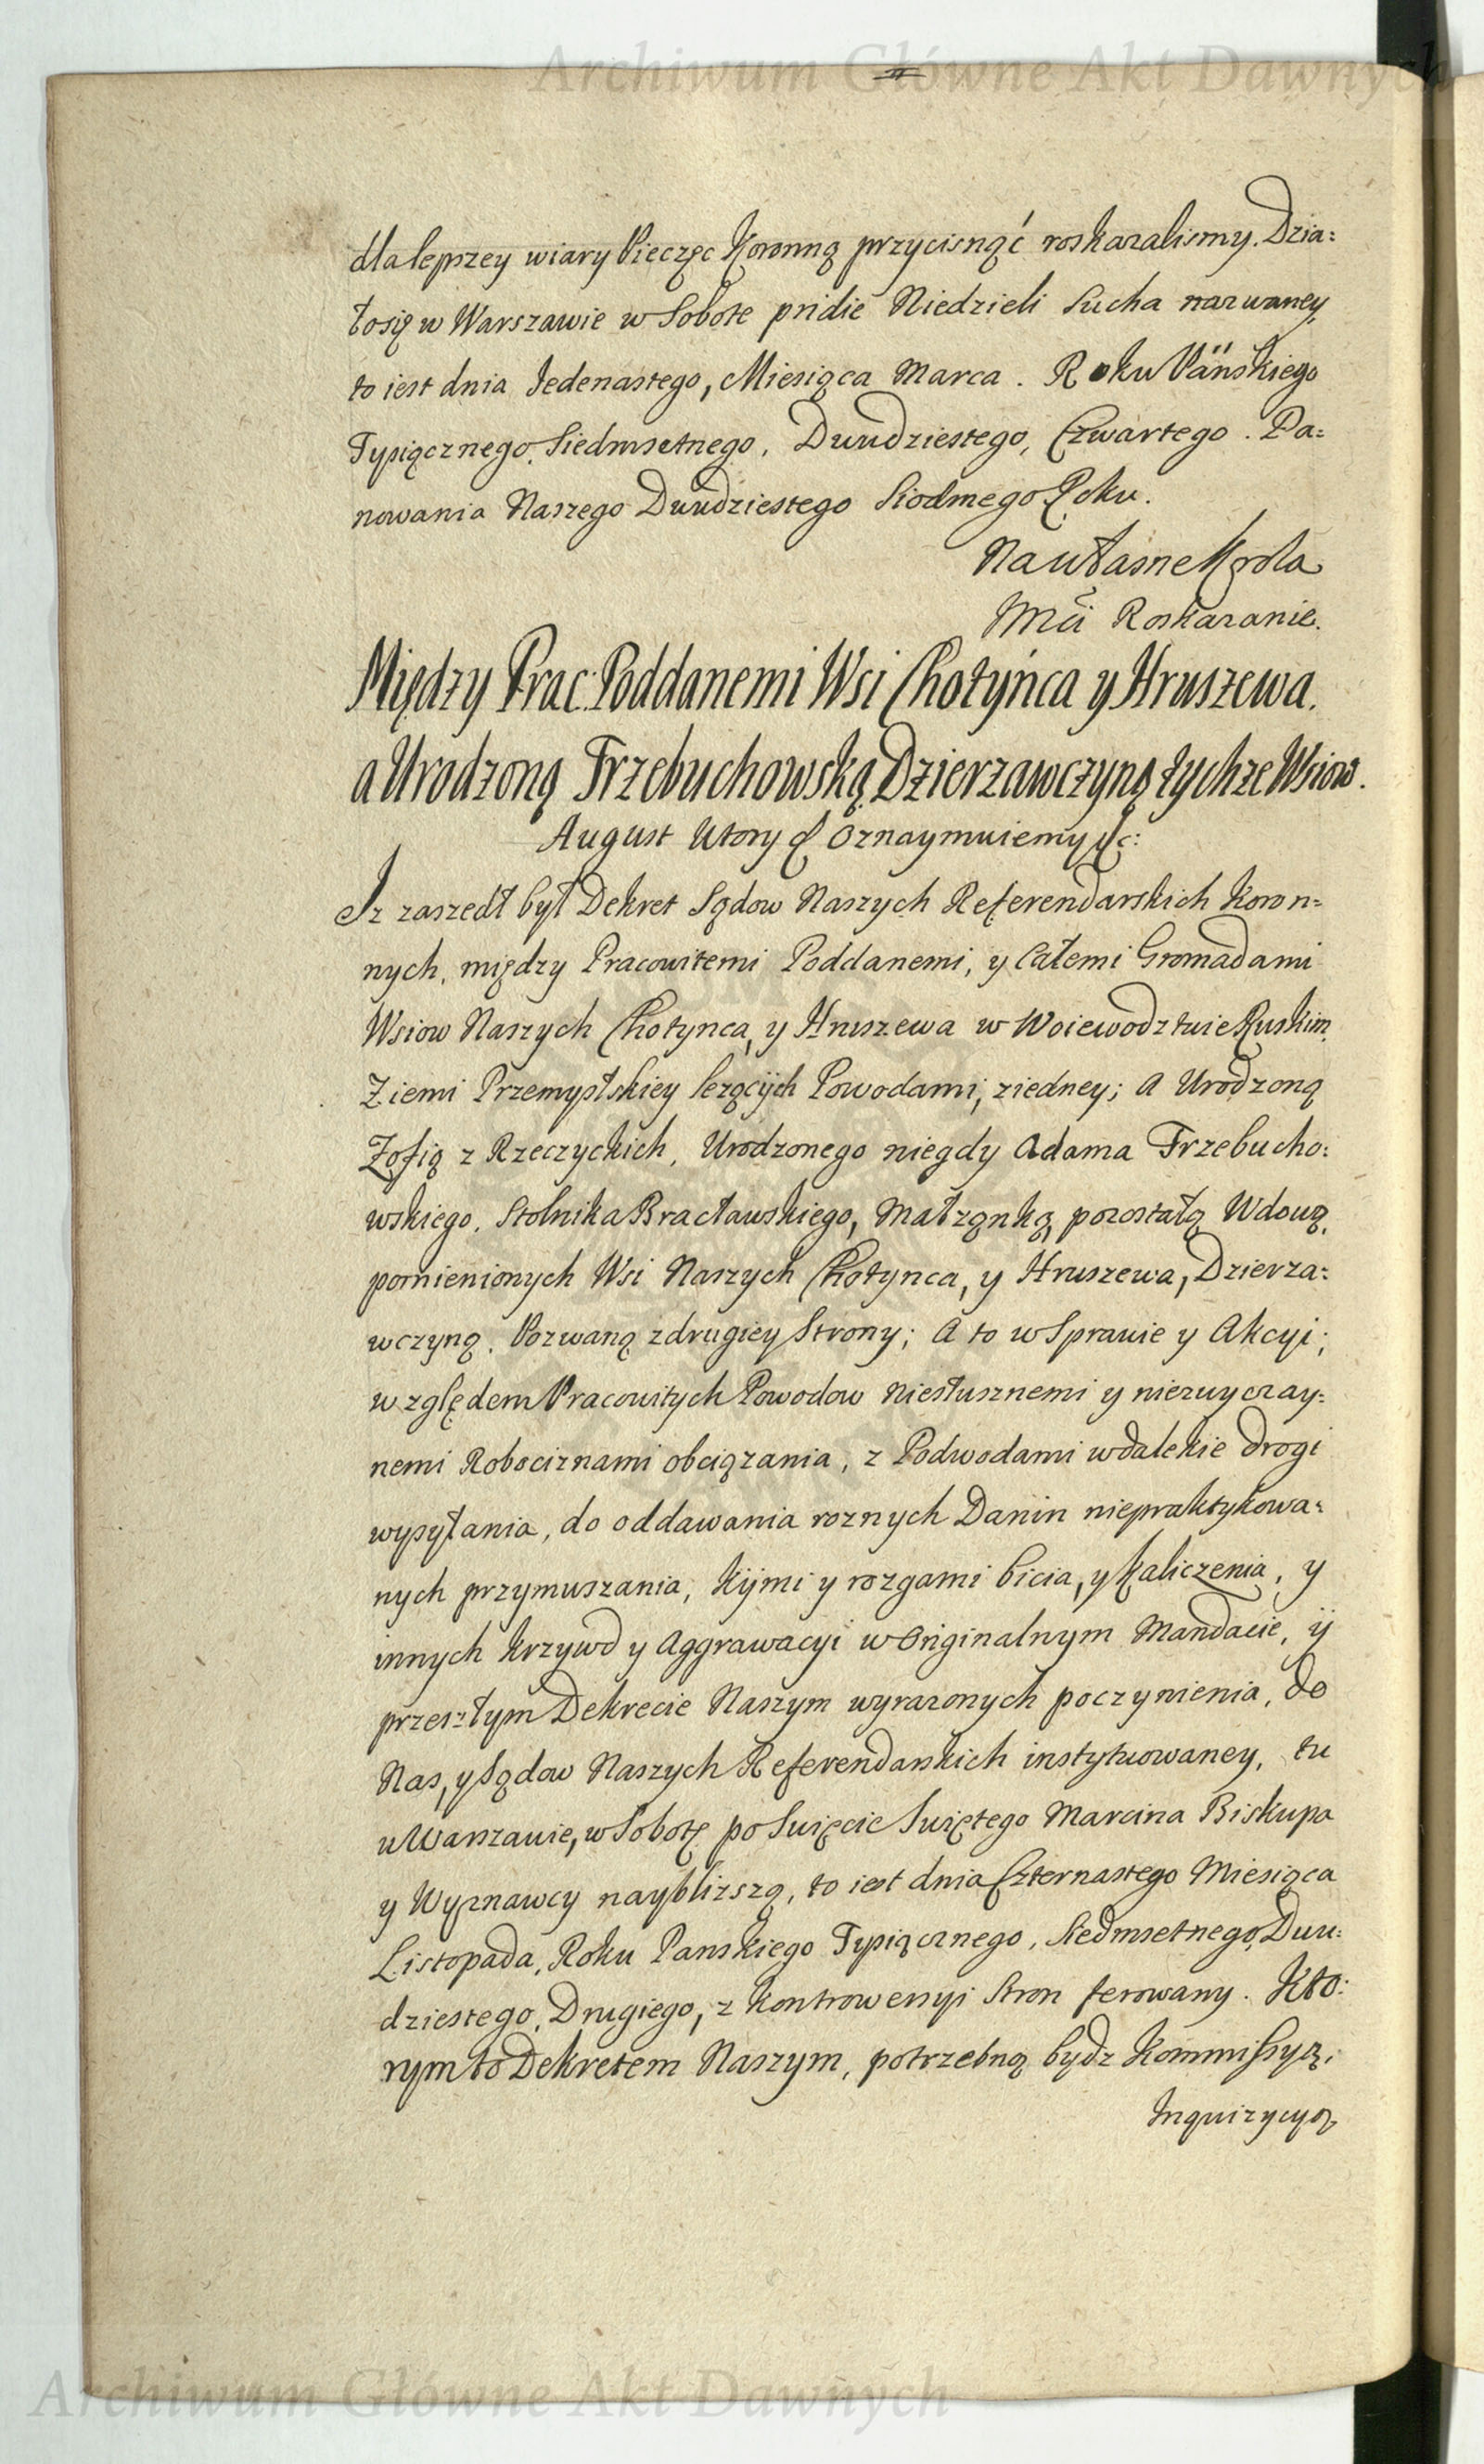 Archiwum Główne Akt Dawnych
dla lepszey wiary Pieczęc Koronną przycisnąć roskazalismy. Dzia=
łosię w Warszawie w Sobote pridie Niedzieli Sucha nazwaney,
to iest dnia Jedenastego, Miesiąca Marca. Roku Pańskiego
Tysiącznego, Siedmsetnego, Dwudziestego, Czwartego. Pa=
nowania Naszego Dwudziestego Siodmego Roku.
Na własne Krola
Mći Roskazanie.
Między Prac: Poddanemi Wsi Chotyńca y Hruszewa.
a Urodzoną Trzebuchowską Dzierzawczyną tychże Wsiow.
August Wtory & Oznaymuiemy &c:
Iz zaszedł był Dekret Sądow Naszych Referendarskich Koron=
nych, między Pracowitemi Poddanemi, y Całemi Gromadami
Wsiow Naszych Chotynca, y Hruszewa w Woiewodztwie Ruskim,
Ziemi Przemysłskiey lezących Powodami, ziedney; a Urodzoną
Zofią z Rzeczyckich, Urodzonego niegdy Adama Trzebucho:
wskiego, Stolnika Bracławskiego, Małząnką, pozostałą Wdową,
pomienionych Wsi Naszych Chotynca, y Hruszewa, Dzierza:
wczyną, Pozwaną zdrugiey Strony; A to w Sprawie y Akcyi;
względem Pracowitych Powodow niesłusznemi y niezwyczay:
nemi Robociznami obciązania, z Podwodami w dalekie drogi
wysyłania, do oddawania roznych Danin niepraktykowa:
nych przymuszania, Kijmi y rozgami bicia, y kaliczenia, y
innych krzywd y Aggrawacyi w Originalnym Mandacie, ÿ
przeszłym Dekrecie Naszym wyrazonych poczynienia, do
Nas, y Sądow Naszych Referendarskich instytuowaney, tu
w Warszawie, w Sobotę po Swięcie Swiętego Marcina Biskupa
y Wyznawcy nayblizszą, to iest dnia Czternastego Miesiąca
Listopada, Roku Panskiego Tysiącznego, Siedmsetnego, Dwu:
dziestego, Drugiego, z Kontrowersyi Stron ferowany. Kto:
rym to Dekretem Naszym, potrzebną bydz Kommissyą,
Inquizycyą
Archiwum Główne Akt Dawnych